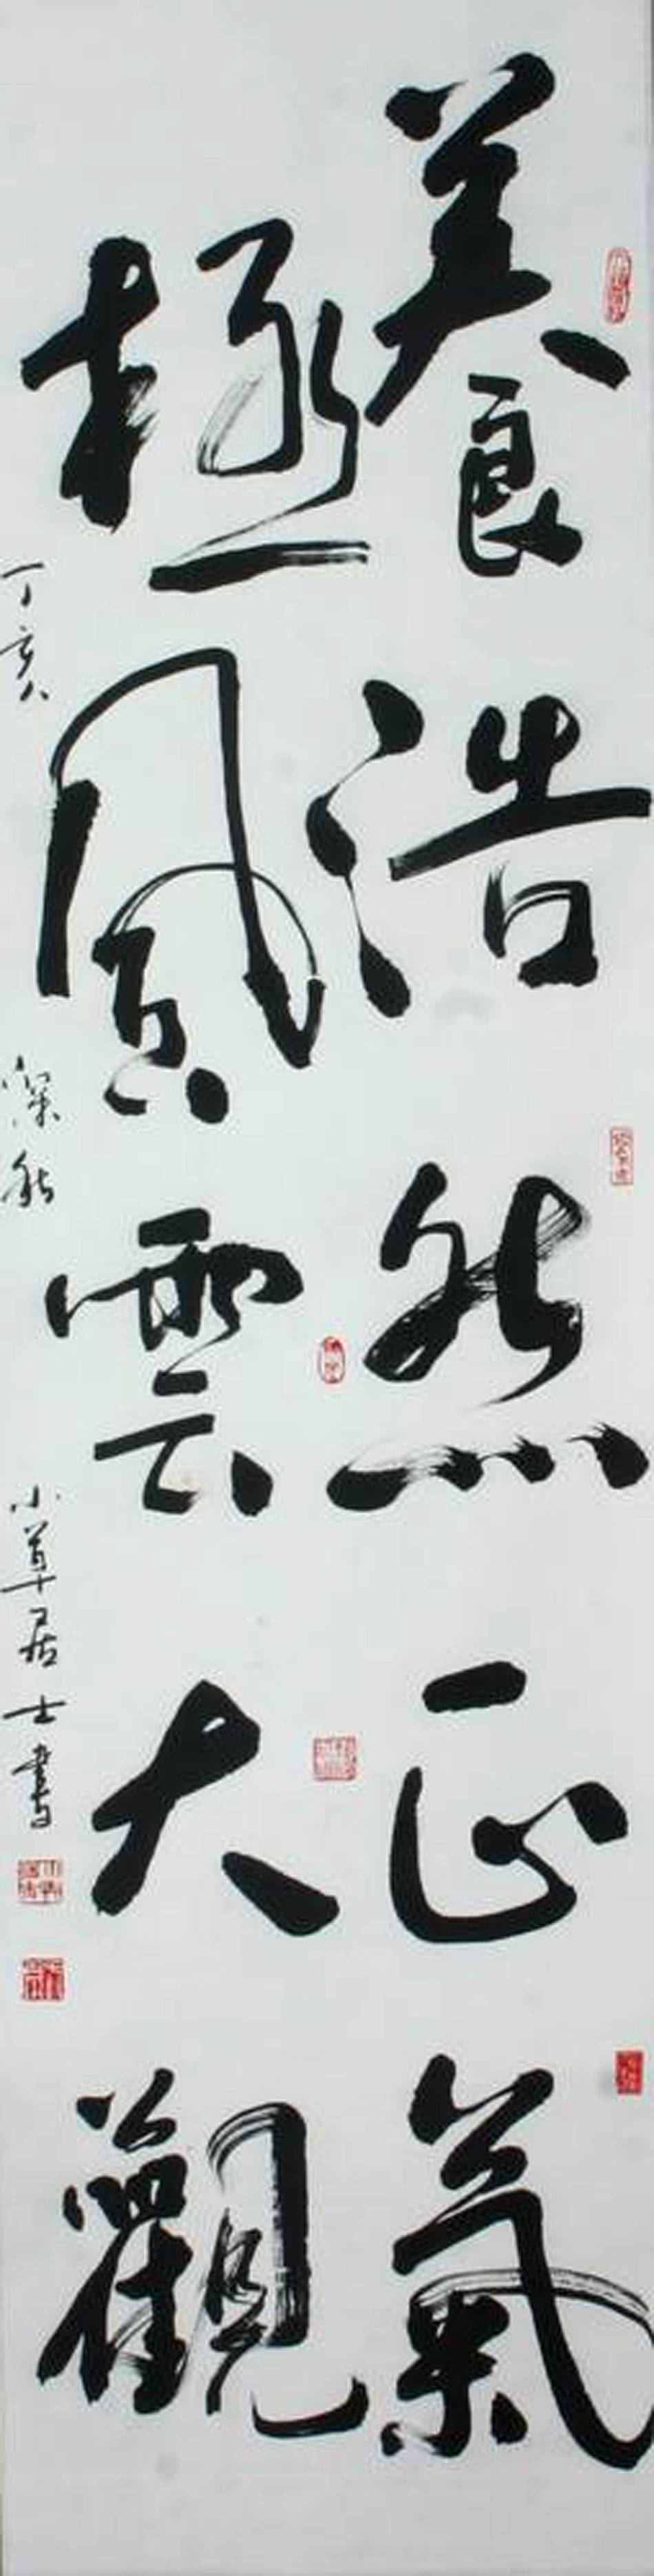 養浩然正氣
極風雲大觀
丁亥 深秋 小草居士書